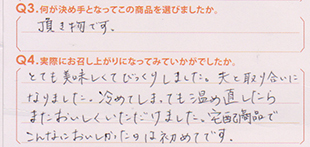 Q3.何が決め手となってこの商品を選びましたか。
頂き物です。
Q4.実際にお召し上がりになってみていかがでしたか。
とても美味しくてびっくりしました。夫と取り合いに
なりました。冷めてしまっても温め直したら
またおいしくいただけました。宅配商品で
こんなにおいしかったのは初めてです。